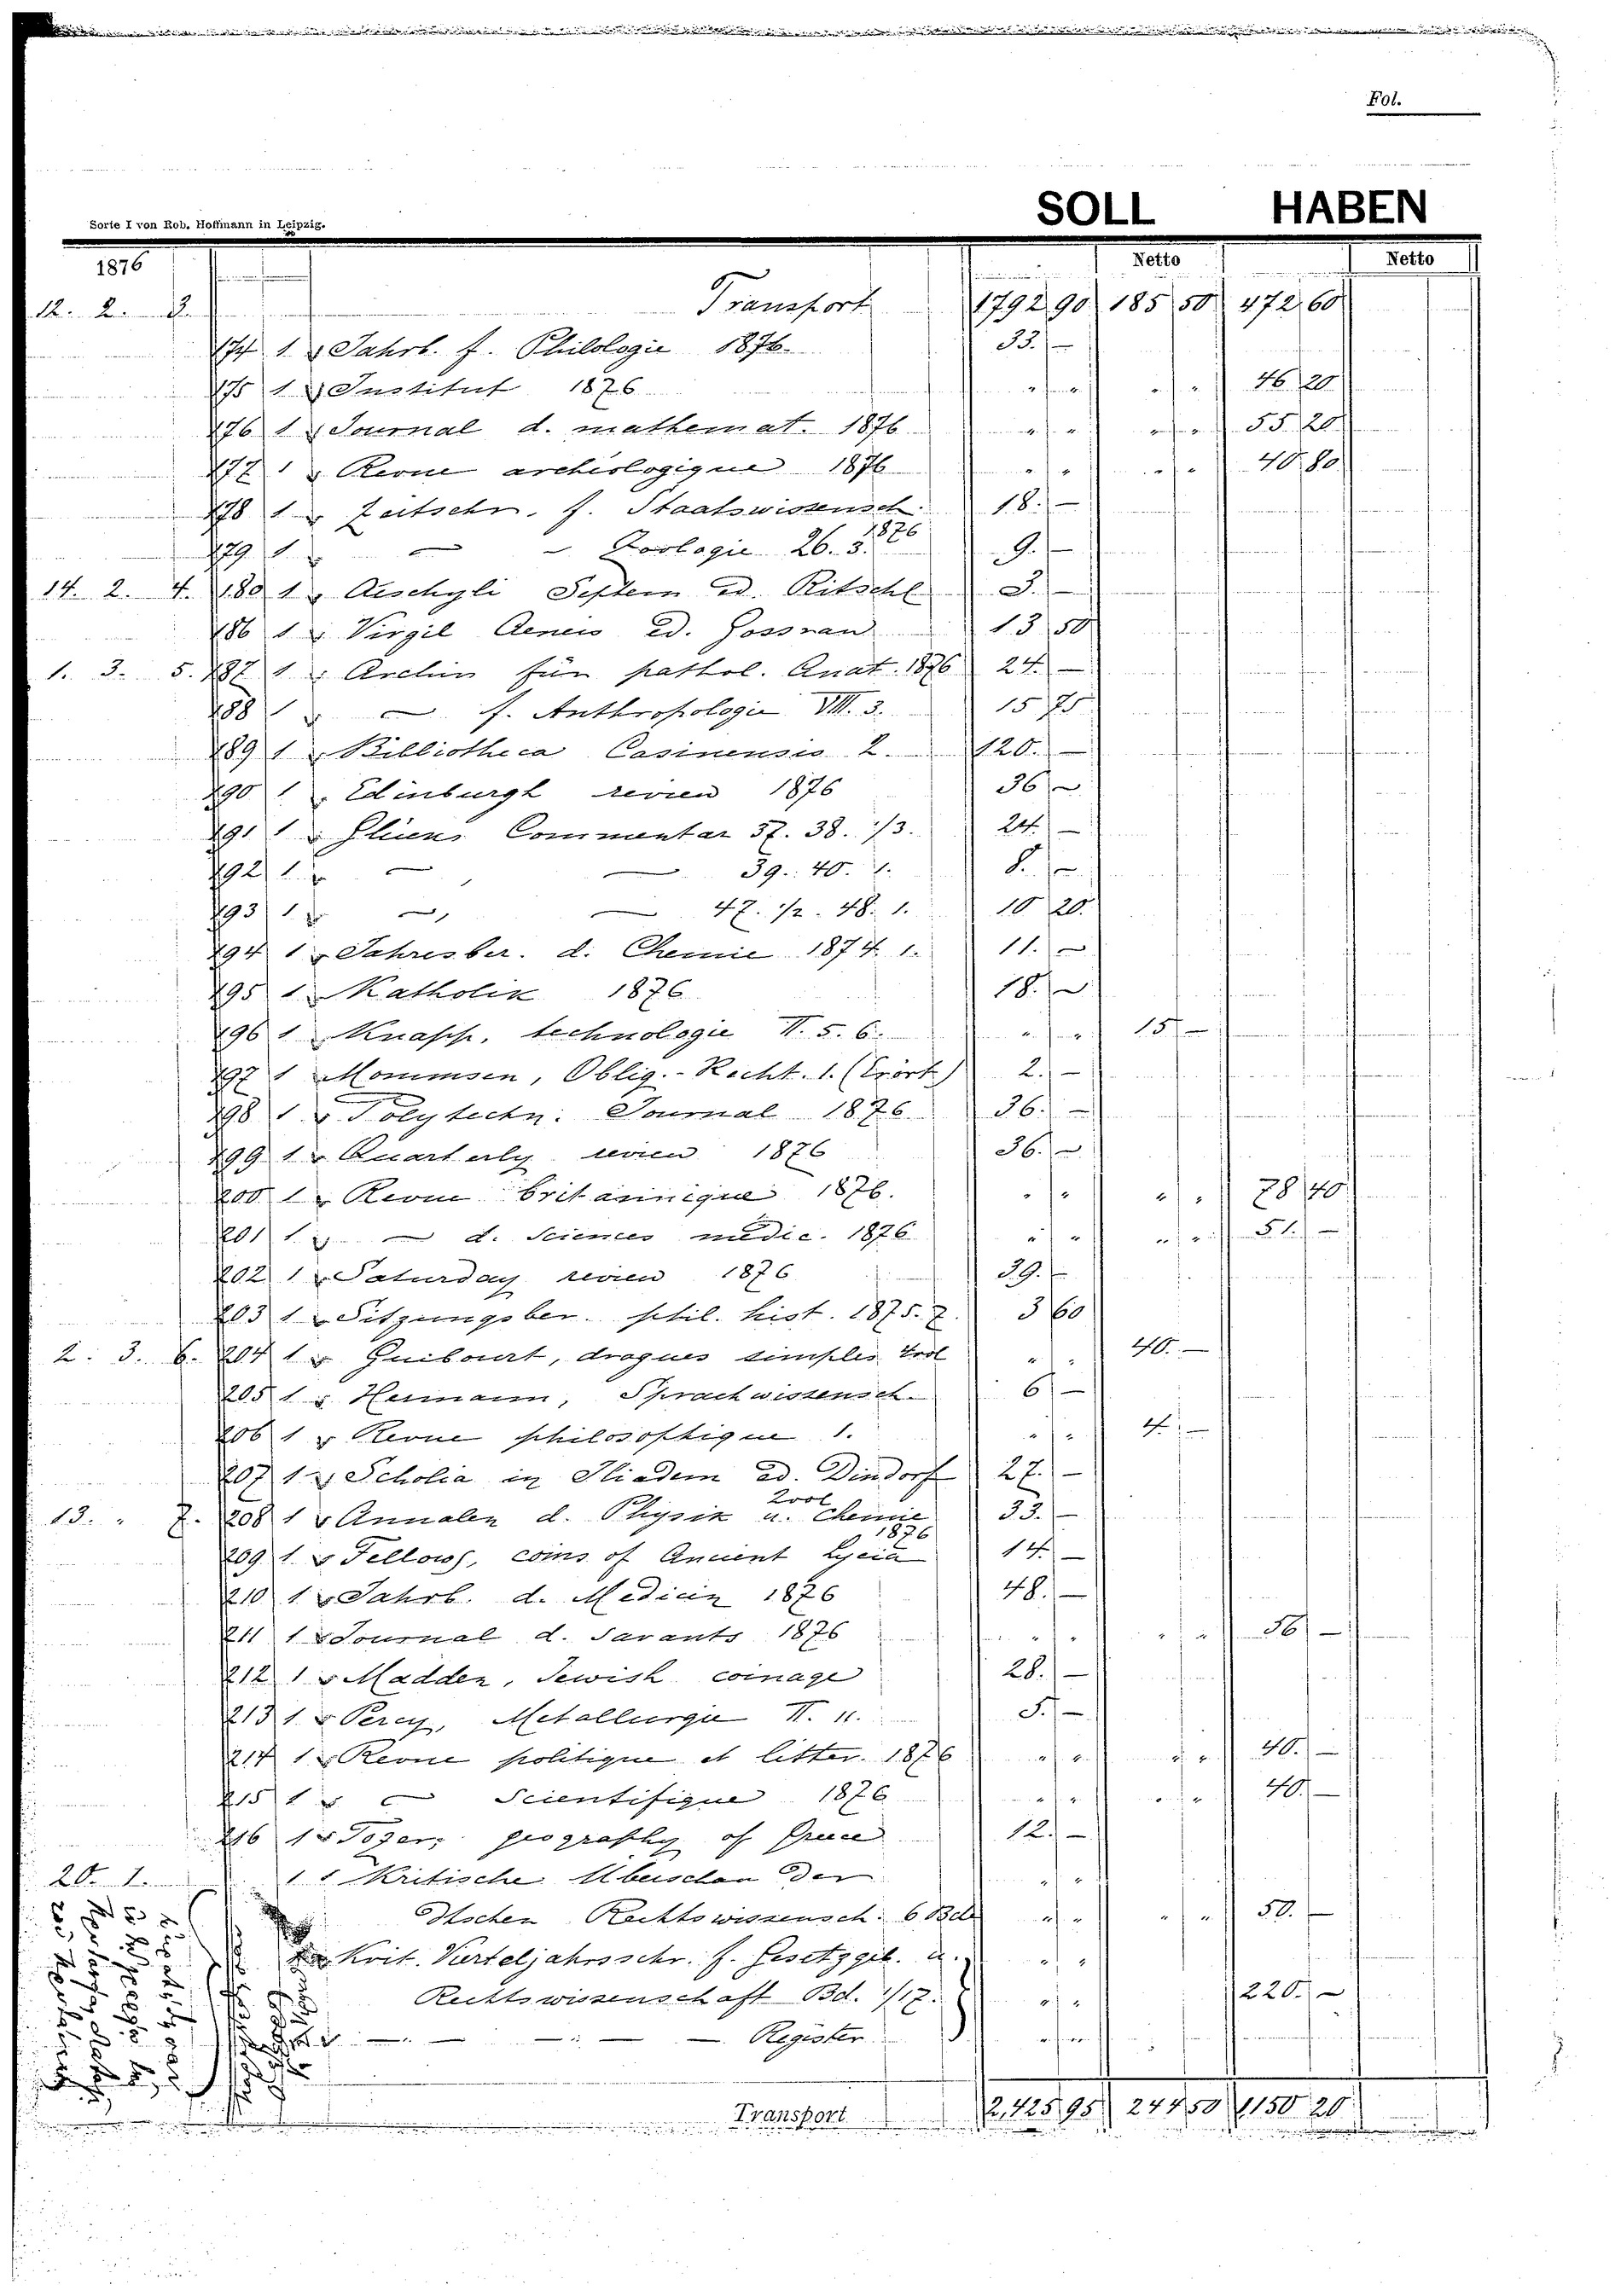 Fol.
SOLL HABEN
Sorte I von Rob. Hoffmann in Leipzig.
1876 Netto Netto
12. 2. 3. Transport 1792 90 185 50 472 60
174 1 Jahrb. f. Philologie 1876. 33. —
175 1 Institut 1876 " " " " 46. 20
176 1 Journal d. mathemat. 1876 " " " " 55. 20
177 1 Revue archéologique 1876 " " " " 40. 80
178 1 Zeitschr. f. Staatswissensch. 18. —
179 1 — — Zoologie 26. 3. 1876 9. —
14. 2. 4. 180 1 Aeschyli Septem ed. Ritschl 3. —
186 1 Virgil Aeneis ed. Gossrau 13 50
1. 3. 5. 187 1 Archiv für pathol. Anat. 1876 24. —
188 1 — f. Anthropologie VIII. 3. 15 75
189 1 Bibliotheca Casinensis 2. 120. —
190 1 Edinburgh review 1876 36 —
191 1 Glück, Commentar 37. 38. 1/3. 24. —
192 1 — — 39. 40. 1. 8. —
193 1 — — 47. 1/2. 48. 1. 10 20.
194 1 Jahresber. d. Chemie 1874. 1. 11. —
195 1 Katholik 1876 18. —
196 1 Knapp, technologie II. 5. 6. " " 15 —
197 1 Mommsen, Oblig.-Recht. 1. (Erört.) 2. —
198 1 Polytechn. Journal 1876 36. —
199 1 Quarterly review 1876 36. —
200 1 Revue britannique 1876. " " " " 78 40
201 1 — d. Sciences médic. 1876 " " " " 51. —
202 1 Saturday review 1876 39. —
203 1 Sitzungsber. phil. hist. 1875. 7. 3 60
2. 3. 6. 204 1 Guibourt, drogues simples 4 vol " " 40. —
205 1 Hermann, Sprachwissensch. 6 —
206 1 Revue philosophique 1. " " 4 —
207 1 Scholia in Iliadem ed. Dindorf 2 vol 27. —
13. " 7. 208 1 Annalen d. Physik u. Chemie 1876 33. —
209 1 Fellows, coins of Ancient Lycia 14. —
210 1 Jahrb. d. Medicin 1876 48. —
211 1 Journal d. Savants 1876 " " " " 36 —
212 1 Madden, Jewish coinage 28. —
213 1 Percy, Metallurgie II. 11. 5. —
214 1 Revue politique et litter. 1876 " " " " 40. —
215 1 — Scientifique 1876 " " " " 40. —
216 1 Tozer, geography of Greece 12. —
20. 1. 1 Kritische Überschau der " "
dtschen Rechtswissensch. 6 Bde " " " " 50. —
Krit. Vierteljahrsschr. f. Gesetzgeb. u. " "
Rechtswissenschaft Bd. 1/17. " " 220. —
— — — — — Register " "
Transport 2,425 95 244 50 1150 20